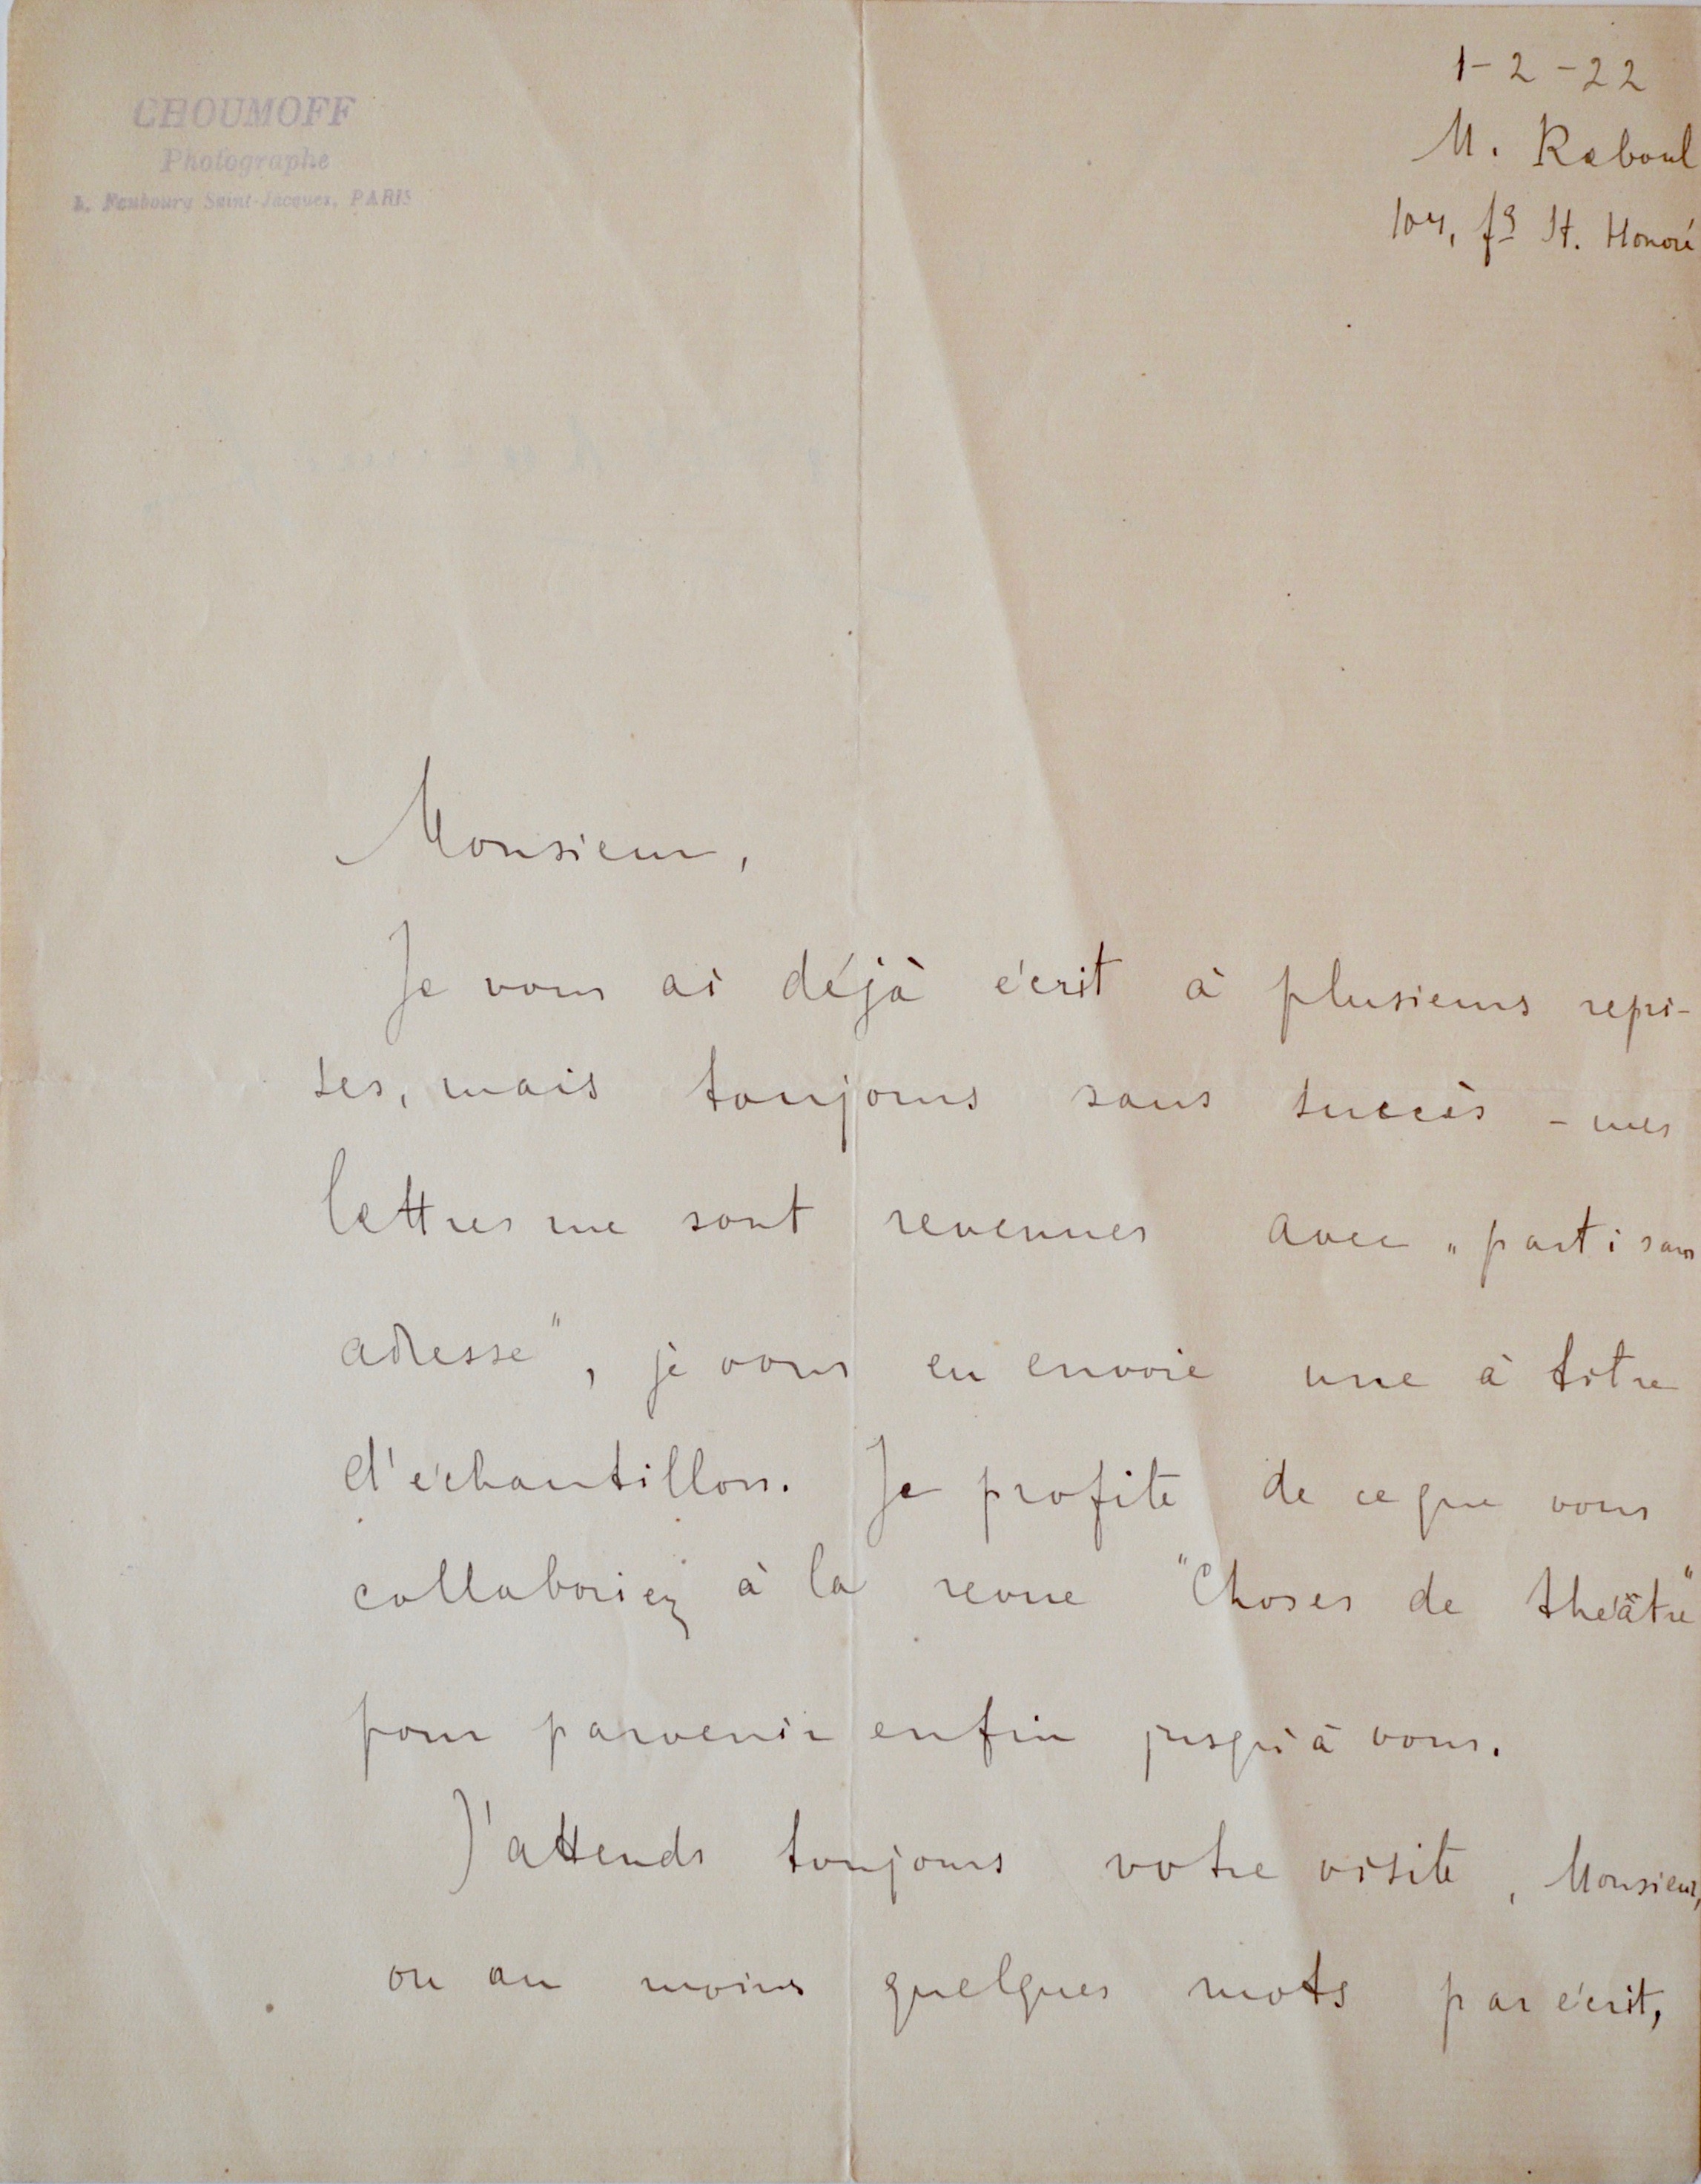 CHOUMOFF
Photographe
Faubourg Saint-Jacques, PARIS
1-2-22
M. Raboul
fg St. Honoré
Monsieur,
Je vous ai déjà écrit à plusieurs repri-
ses, mais toujours sans succès - mes
lettres me sont revenues avec „parti sans
adresse", je vous en envoie une à titre
d'échantillon. Je profite de ce que vous
collaboriez à la revue "Choses de théâtre"
pour parvenir enfin jusqu'à vous.
J'attends toujours votre visite, Monsieur,
ou au moins quelques mots par écrit,